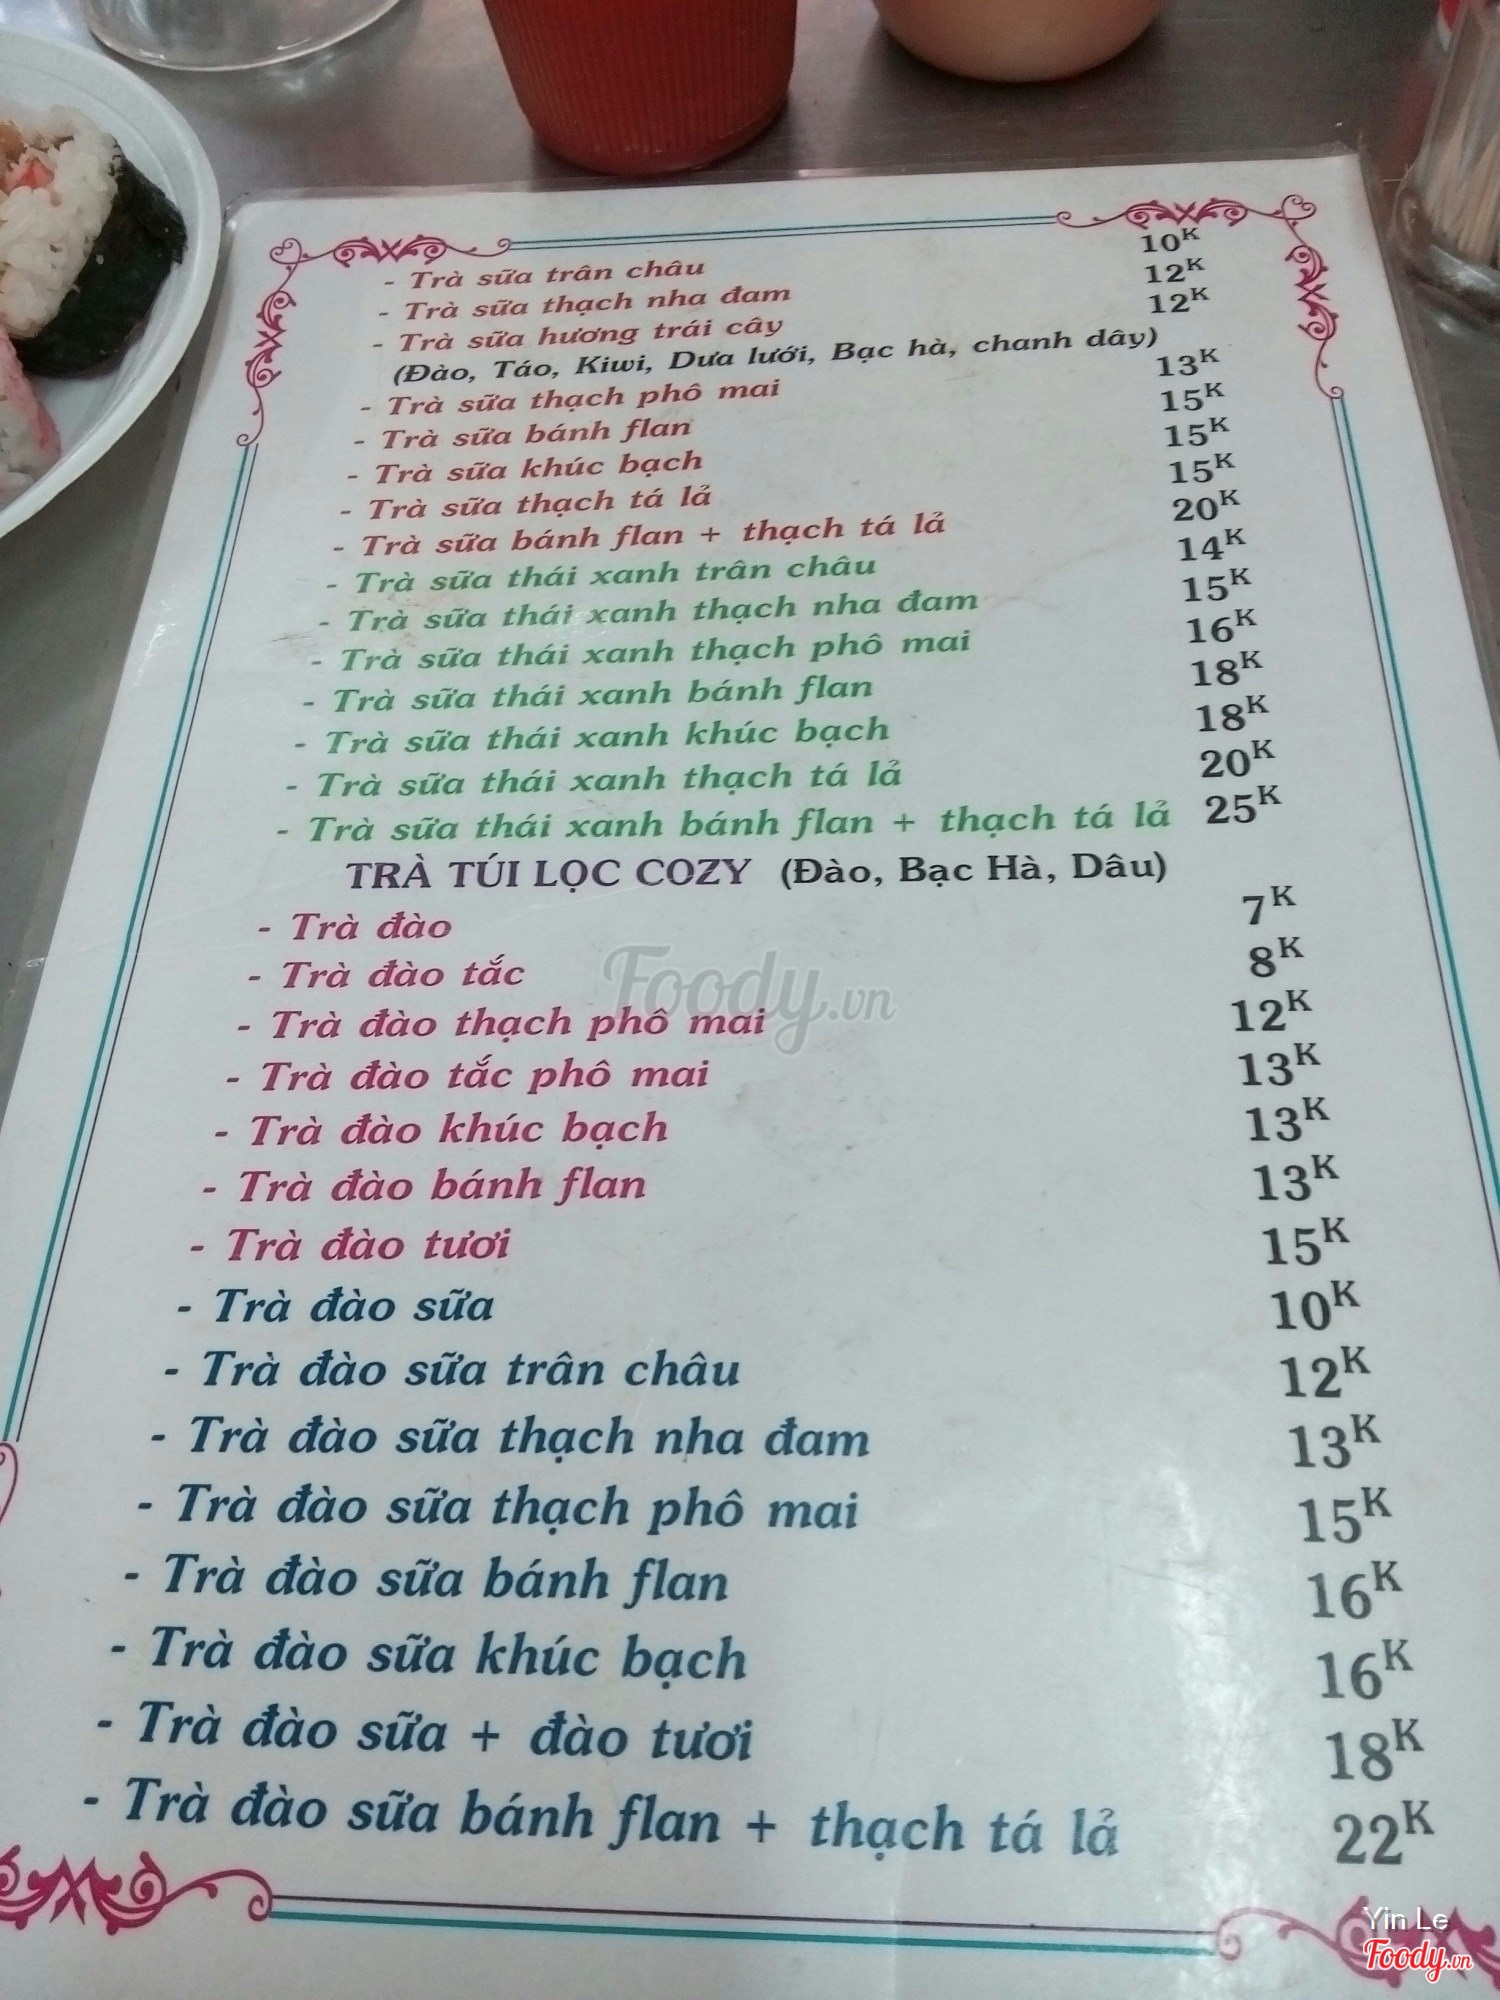 - Trà sữa trân châu 10K
- Trà sữa thạch nha đam 12K
- Trà sữa hương trái cây 12K
(Đào, Táo, Kiwi, Dưa lưới, Bạc hà, chanh dây)
- Trà sữa thạch phô mai 13K
- Trà sữa bánh flan 15K
- Trà sữa khúc bạch 15K
- Trà sữa thạch tá lả 15K
- Trà sữa bánh flan + thạch tá lả 20K
- Trà sữa thái xanh trân châu 14K
- Trà sữa thái xanh thạch nha đam 15K
- Trà sữa thái xanh thạch phô mai 16K
- Trà sữa thái xanh bánh flan 18K
- Trà sữa thái xanh khúc bạch 18K
- Trà sữa thái xanh thạch tá lả 20K
- Trà sữa thái xanh bánh flan + thạch tá lả 25K
TRÀ TÚI LỌC COZY (Đào, Bạc Hà, Dâu)
- Trà đào 7K
- Trà đào tắc 8K
- Trà đào thạch phô mai 12K
- Trà đào tắc phô mai 13K
- Trà đào khúc bạch 13K
- Trà đào bánh flan 13K
- Trà đào tươi 15K
- Trà đào sữa 10K
- Trà đào sữa trân châu 12K
- Trà đào sữa thạch nha đam 13K
- Trà đào sữa thạch phô mai 15K
- Trà đào sữa bánh flan 16K
- Trà đào sữa khúc bạch 16K
- Trà đào sữa + đào tươi 18K
- Trà đào sữa bánh flan + thạch tá lả 22K
Foody.vn
Yin Le
Foody.vn